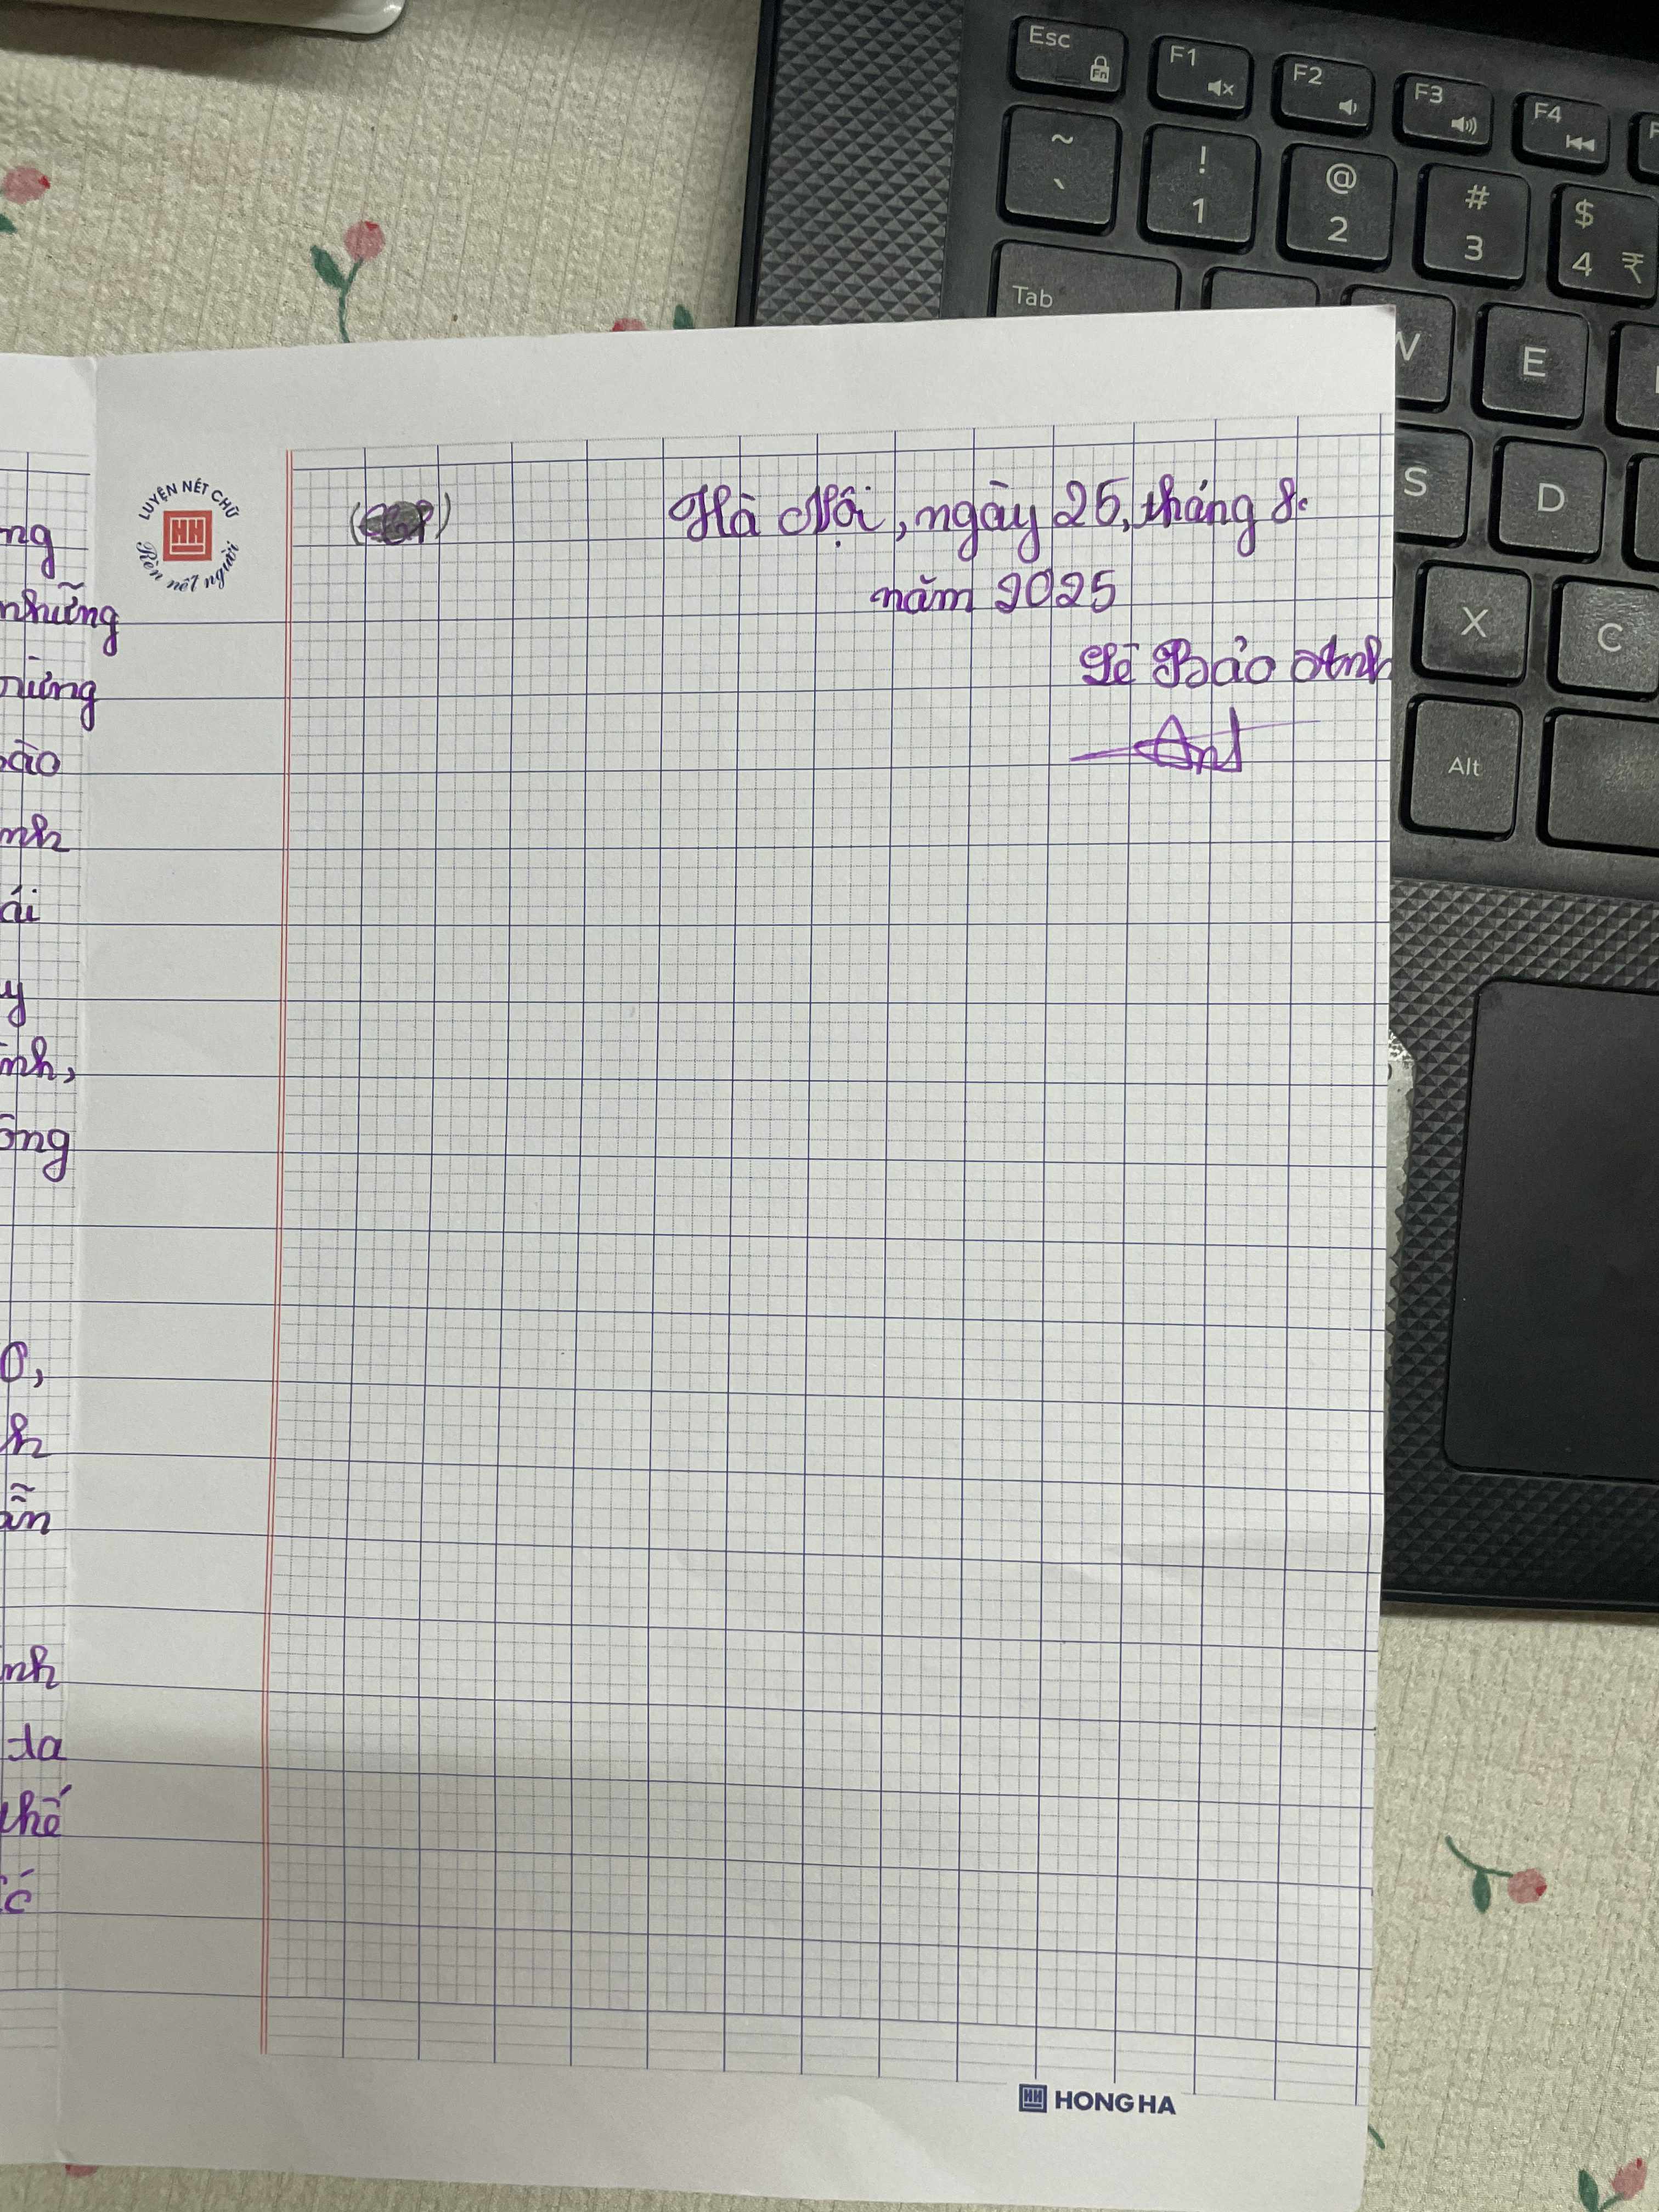 Esc
Fn
F1
F2
F3
F4
~
`
!
1
@
2
#
3
$
4 ₹
Tab
W
E
S
D
X
C
Alt
LUYỆN NÉT CHỮ
HH
Rèn nết người
Hà Nội, ngày 25, tháng 8.
năm 2025
Lê Bảo Anh
Anh
ng
những
rừng
bào
nh
ái
y
nh,
ông
0,
h
ẫn
nh
ta
thế
HH HONG HA